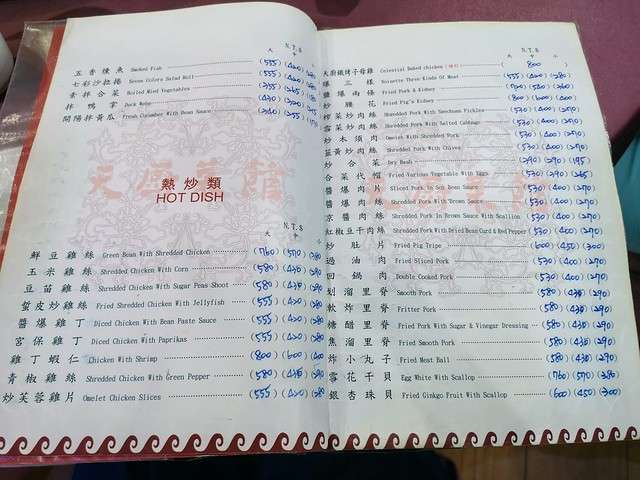 N.T.$
大 中 小
五香燻魚 Smoked Fish (555)(420)(280)
七彩沙拉捲 Seven Colors Salad Roll (555)(420)(280)
素拌合菜 Boiled Mixed Vegetables (355)(265)(180)
拌鴨掌 Duck Webs (430)(320)
開陽拌黃瓜 Fresh Cucumber With Bean Sauce (340)(255)(170)
天廚菜館
熱炒類
HOT DISH
N.T.$
大 中 小
鮮豆雞絲 Green Bean With Shredded Chicken (760)(570)(380)
玉米雞絲 Shredded Chicken With Corn (580)(430)(290)
豆苗雞絲 Shredded Chicken With Sugar Peas Shoot (580)(430)(290)
蜇皮炒雞絲 Fried Shredded Chicken With Jellyfish (555)(420)(280)
醬爆雞丁 Diced Chicken With Bean Paste Sauce (555)(420)(280)
宮保雞丁 Diced Chicken With Paprikas (555)(420)(280)
雞丁蝦仁 Chicken With Shrimp (800)(600)(400)
青椒雞絲 Shredded Chicken With Green Pepper (580)(430)(290)
炒芙蓉雞片 Omelet Chicken Slices (555)(420)(280)
N.T.$
大 中 小
天廚鐵烤子母雞 Celestial Baked chicken (800)
爆三樣 Noisette Three Kinds Of Meat (555)(420)(280)
鹽爆兩條 Fried Pork & Kidney (720)(540)(360)
炒腰花 Fried Pig's Kidney (800)(600)(400)
榨菜炒肉絲 Shredded Pork With Szechuan Pickles (530)(400)(270)
雪菜炒肉絲 Shredded Pork With Salted Cabbage (530)(400)(270)
炒木須肉 Omelet With Shredded Pork (530)(400)(270)
韮黃炒肉絲 Shredded Pork With Chives (530)(400)(270)
炒合菜 (390)(290)(195)
合菜代帽 Fried Various Vegetable With Eggs (530)(400)(265)
醬爆肉片 Sliced Pork In Soy Bean Sauce (530)(400)(270)
醬爆肉絲 Shredded Pork With Brown Sauce (530)(400)(270)
京醬肉絲 Shredded Pork In Brown Sauce With Scallion (530)(400)(270)
紅椒豆干肉絲 Shredded Pork With Dried Bean Curd & Red Pepper (530)(400)(270)
炒肚片 Fried Pig Tripe (600)(450)(300)
過油肉 Fried Sliced Pork (530)(400)(270)
回鍋肉 Double Cooked Pork (530)(400)(270)
划溜里脊 Smooth Pork (580)(430)(290)
軟炸里脊 Fritter Pork (580)(430)(290)
糖醋里脊 Fried Pork With Sugar & Vinegar Dressing (580)(430)(290)
焦溜里脊 Fried Smooth Pork (580)(430)(290)
炸小丸子 Fried Meat Ball (580)(430)(290)
雪花干貝 Egg White With Scallop (760)(570)(380)
銀杏珠貝 Fried Ginkgo Fruit With Scallop (600)(450)(300)